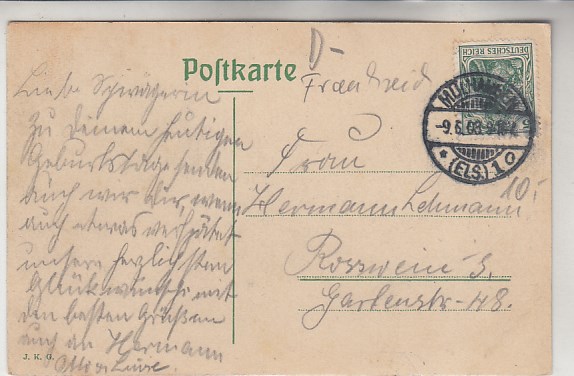 Postkarte
D-
Frankreich
DEUTSCHES REICH
MÜLHAUSEN
-9.6.08.
* (ELS.) 1 o
10.-
Liebe Schwägerin
Zu Deinem heutigen
Geburtstage senden
auch wir dir, wenn
auch etwas verspätet
unsere herzlichsten
Glückwünsche mit
den besten Grüßen
auch an Hermann
Frau
Hermann Lehmann
Rosswein S.
Gartenstr. 48.
J. K. G.